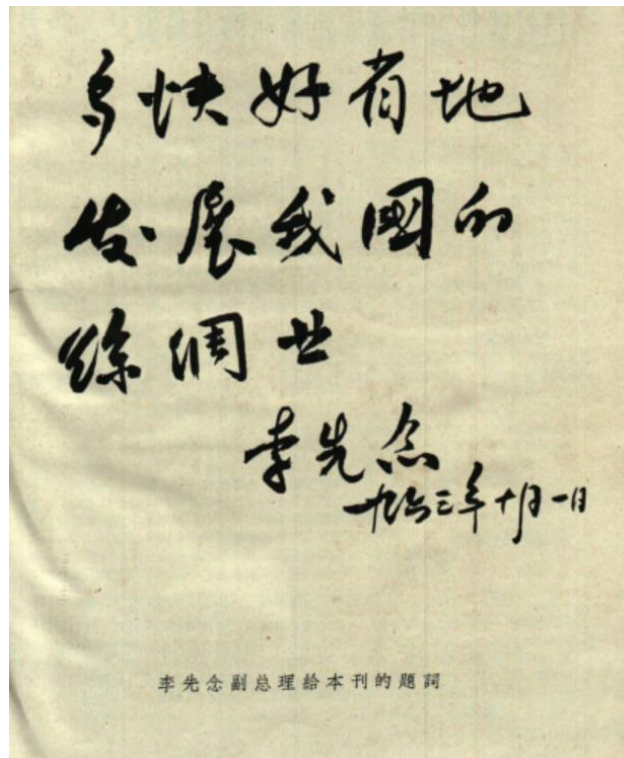 多快好省地
发展我國的
絲綢业
李先念
一九六三年十月一日
李先念副总理給本刊的題詞